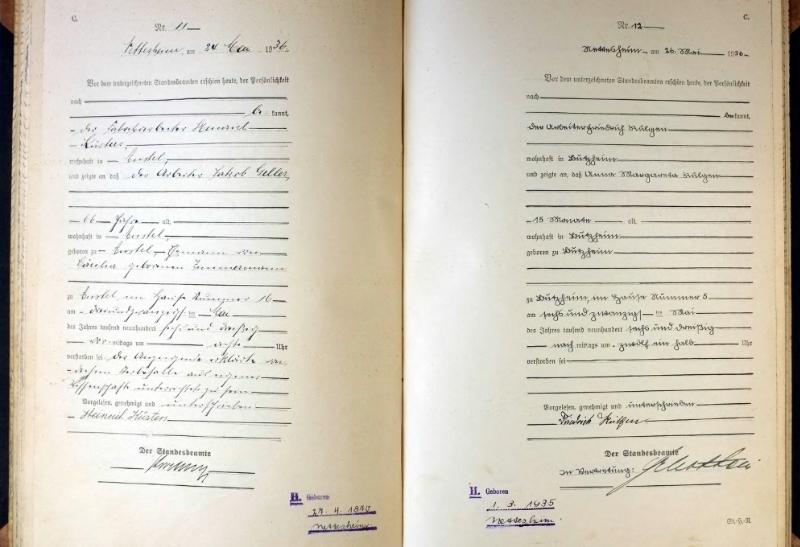 C.
Nr. 11
Nettesheim, am 24 Mai 1936
Vor dem unterzeichneten Standesbeamten erschien heute, der Persönlichkeit
nach
be kannt,
der Fabrikarbeiter Heinrich
Küsters,
wohnhaft in Anstel,
und zeigte an, daß der Arbeiter Jakob Geller,
66 Jahre alt,
wohnhaft in Anstel,
geboren zu Anstel, Ehemann von
Cäcilia geborenen Zimmermann
zu Anstel im Hause Nummer 16
am dreiundzwanzigsten Mai
des Jahres tausend neunhundert sechs und dreißig
vor mittags um achte Uhr
verstorben sei. Der Anzeigende erklärte von
diesem Sterbefalle aus eigener
Wissenschaft unterrichtet zu sein
Vorgelesen, genehmigt und unterschrieben
Heinrich Küsters
Der Standesbeamte
H. Geboren
Nettesheim
C.
Nr. 12
Nettesheim am 26. Mai 1936
Vor dem unterzeichneten Standesbeamten erschien heute, der Persönlichkeit
nach
bekannt,
der Arbeiter Friedrich Külgen
wohnhaft in Butzheim
und zeigte an, daß Anna Margareta Külgen
15 Monate alt,
wohnhaft in Butzheim
geboren zu Butzheim
zu Butzheim, im Hause Nummer 5
am sechs und zwanzigst ten Mai
des Jahres tausend neunhundert sechs und dreißig
nach mittags um zwölf ein halb Uhr
verstorben sei
Vorgelesen, genehmigt und unterschrieben
Friedrich Külgen
Der Standesbeamte
In Vertretung:
H. Geboren
1. 3. 1935
Nettesheim